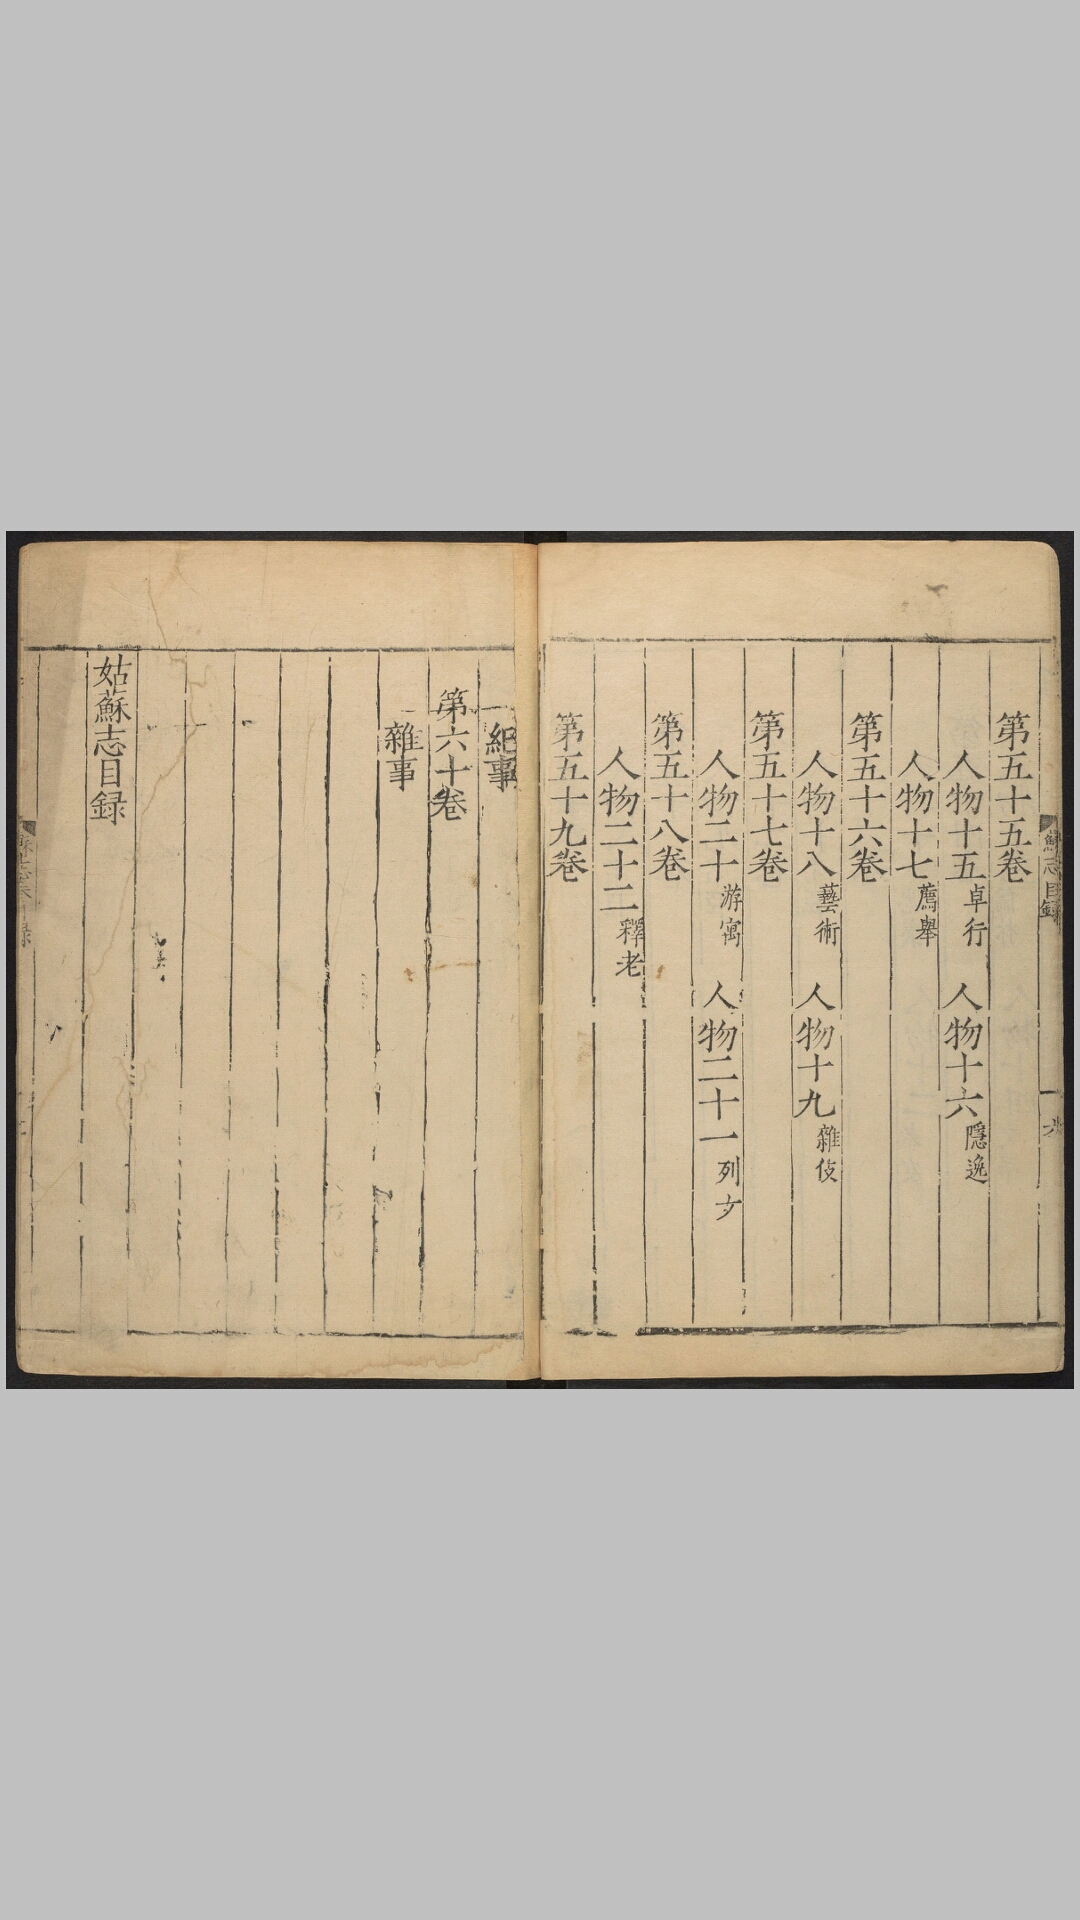 第五十五卷
人物十五卓行 人物十六隱逸
人物十七薦舉
第五十六卷
人物十八藝術 人物十九雜伎
第五十七卷
人物二十游寓 人物二十一列女
第五十八卷
人物二十二釋老
第五十九卷
紀事
第六十卷
雜事
姑蘇志目録
蘇志目録